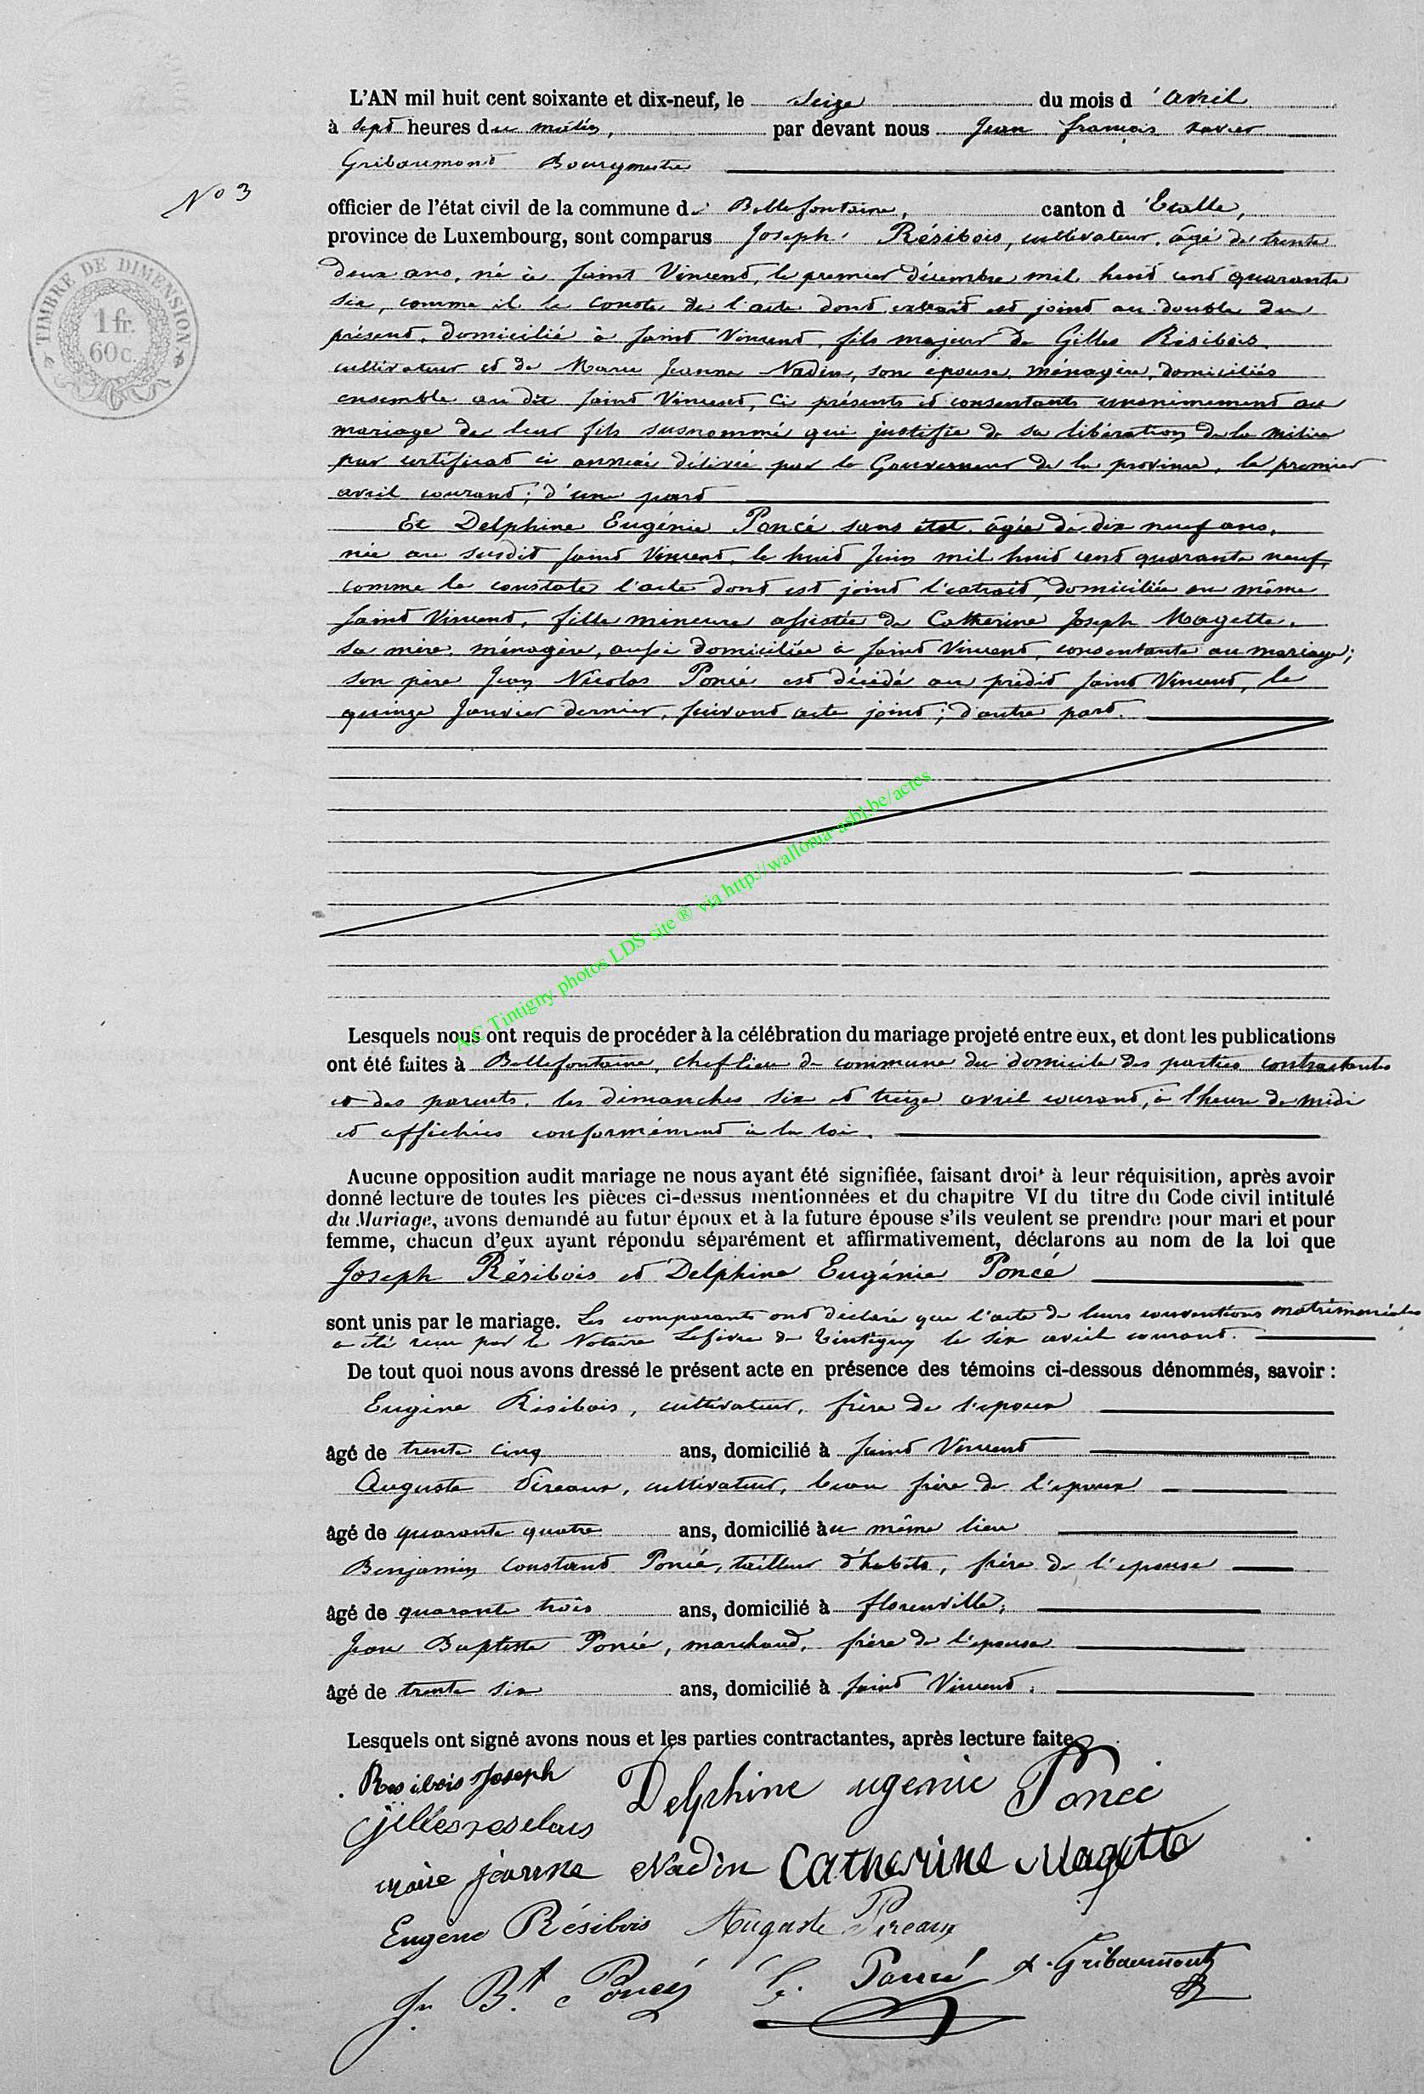 L'AN mil huit cent soixante et dix-neuf, le seize du mois d'avril
à sept heures du matin, par devant nous Jean françois xavier
Gribaumont Bourgmestre
N° 3
officier de l'état civil de la commune de Bellefontaine, canton d'Etalle,
province de Luxembourg, sont comparus Joseph Résibois, cultivateur, âgé de trente
deux ans, né à Saint Vincent, le premier décembre mil huit cent quarante
six, comme il le conste de l'acte dont extrait est joint au double du
présent, domicilié à Saint Vincent, fils majeur de Gilles Résibois,
cultivateur et de Marie Jeanne Nadin, son épouse, ménagère, domiciliés
ensemble au dit Saint Vincent, ci présents et consentants unanimement au
mariage de leur fils susnommé qui justifie de sa libération de la milice
par certificat ci annexé délivré par le Gouverneur de la province, le premier
avril courant; d'une part
Et Delphine Eugénie Poncé sans état, âgée de dix neuf ans,
née au susdit Saint Vincent, le huit Juin mil huit cent quarante neuf,
comme le constate l'acte dont est joint l'extrait, domiciliée au même
Saint Vincent, fille mineure assistée de Catherine Joseph Magette,
sa mère, ménagère, aussi domiciliée à Saint Vincent, consentante au mariage;
son père Jean Nicolas Poncé est décédé au prédit Saint Vincent, le
quinze Janvier dernier, suivant acte joint; d'autre part.
TIMBRE DE DIMENSION
1 fr.
60 c.
AC Tintigny photos LDS site ® via http://wallonia-asbl.be/actes
Lesquels nous ont requis de procéder à la célébration du mariage projeté entre eux, et dont les publications
ont été faites à Bellefontaine, chef lieu de commune du domicile des parties contractantes
et des parents, les dimanches six et treize avril courant, à l'heure de midi
et affichées conformément à la loi.
Aucune opposition audit mariage ne nous ayant été signifiée, faisant droit à leur réquisition, après avoir
donné lecture de toutes les pièces ci-dessus mentionnées et du chapitre VI du titre du Code civil intitulé
du Mariage, avons demandé au futur époux et à la future épouse s'ils veulent se prendre pour mari et pour
femme, chacun d'eux ayant répondu séparément et affirmativement, déclarons au nom de la loi que
Joseph Résibois et Delphine Eugénie Poncé
sont unis par le mariage. Les comparants ont déclaré que l'acte de leurs conventions matrimoniales
a été reçu par le Notaire Lefèvre de Tintigny le six avril courant.
De tout quoi nous avons dressé le présent acte en présence des témoins ci-dessous dénommés, savoir :
Eugène Résibois, cultivateur, frère de l'époux
âgé de trente cinq ans, domicilié à Saint Vincent
Auguste Pireaux, cultivateur, beau frère de l'époux
âgé de quarante quatre ans, domicilié au même lieu
Benjamin Constant Poncé, tailleur d'habits, frère de l'épouse
âgé de quarante trois ans, domicilié à florenville,
Jean Baptiste Poncé, marchand, frère de l'épouse
âgé de trente six ans, domicilié à Saint Vincent.
Lesquels ont signé avons nous et les parties contractantes, après lecture faite
Resibois Joseph Delphine ugenie Poncé
Gilles
marie jeanne Nadin Catherine Magette
Eugène Résibois Auguste Pireaux
Jn Bt Poncé Poncé X. Gribaumont